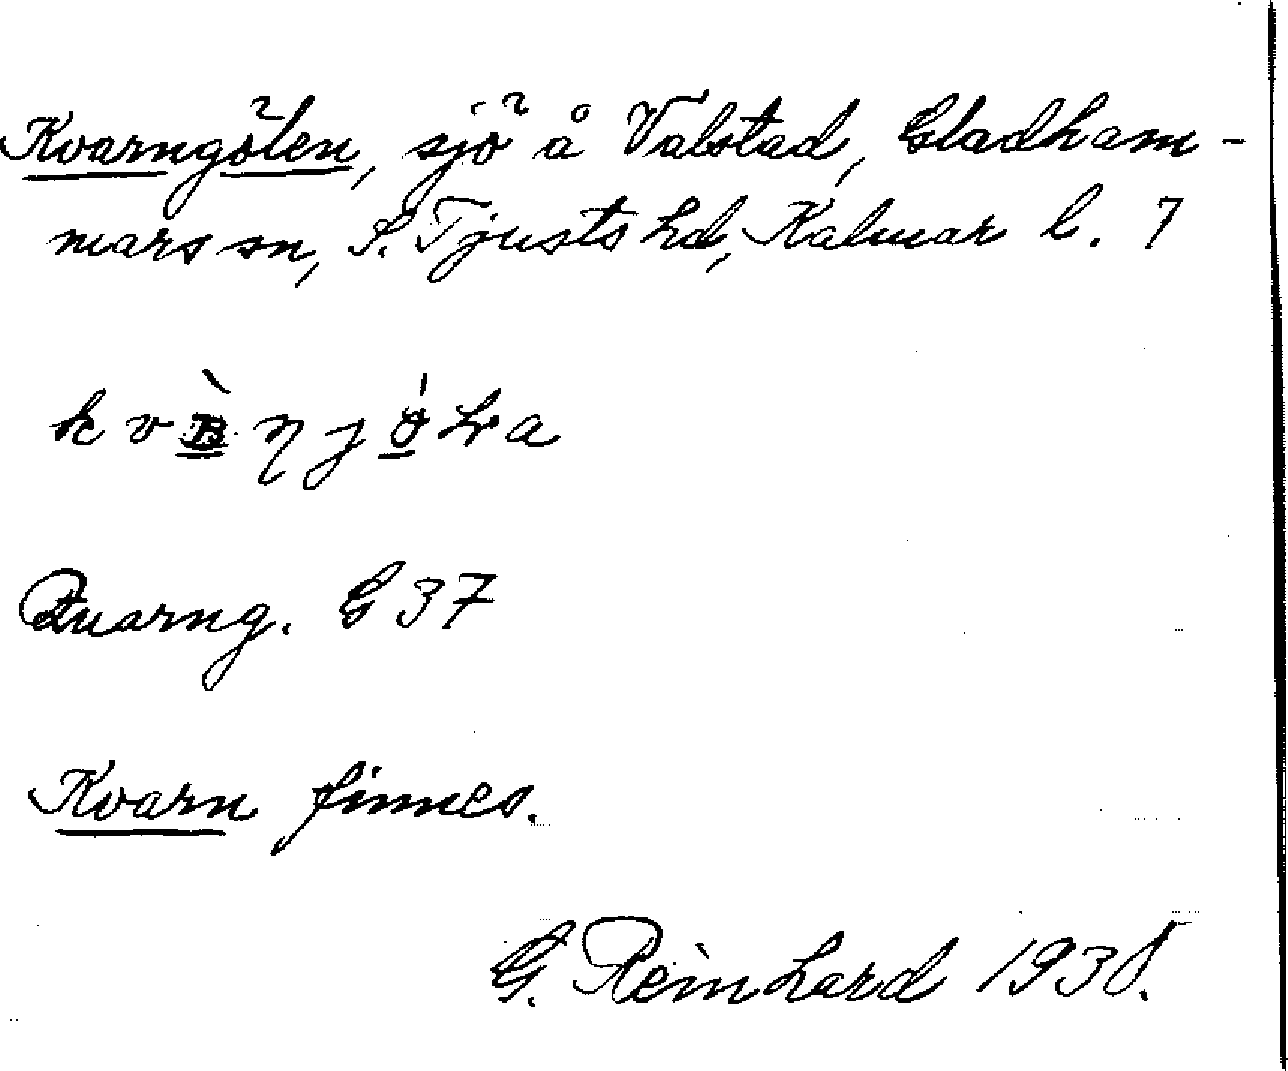 Kvarngölen, sjö å Valstad, Gladham-
mars sn, S. Tjusts hd, Kalmar l. 7
Quarng. G 37
Kvarn finnes.
G. Reinhard 1938.